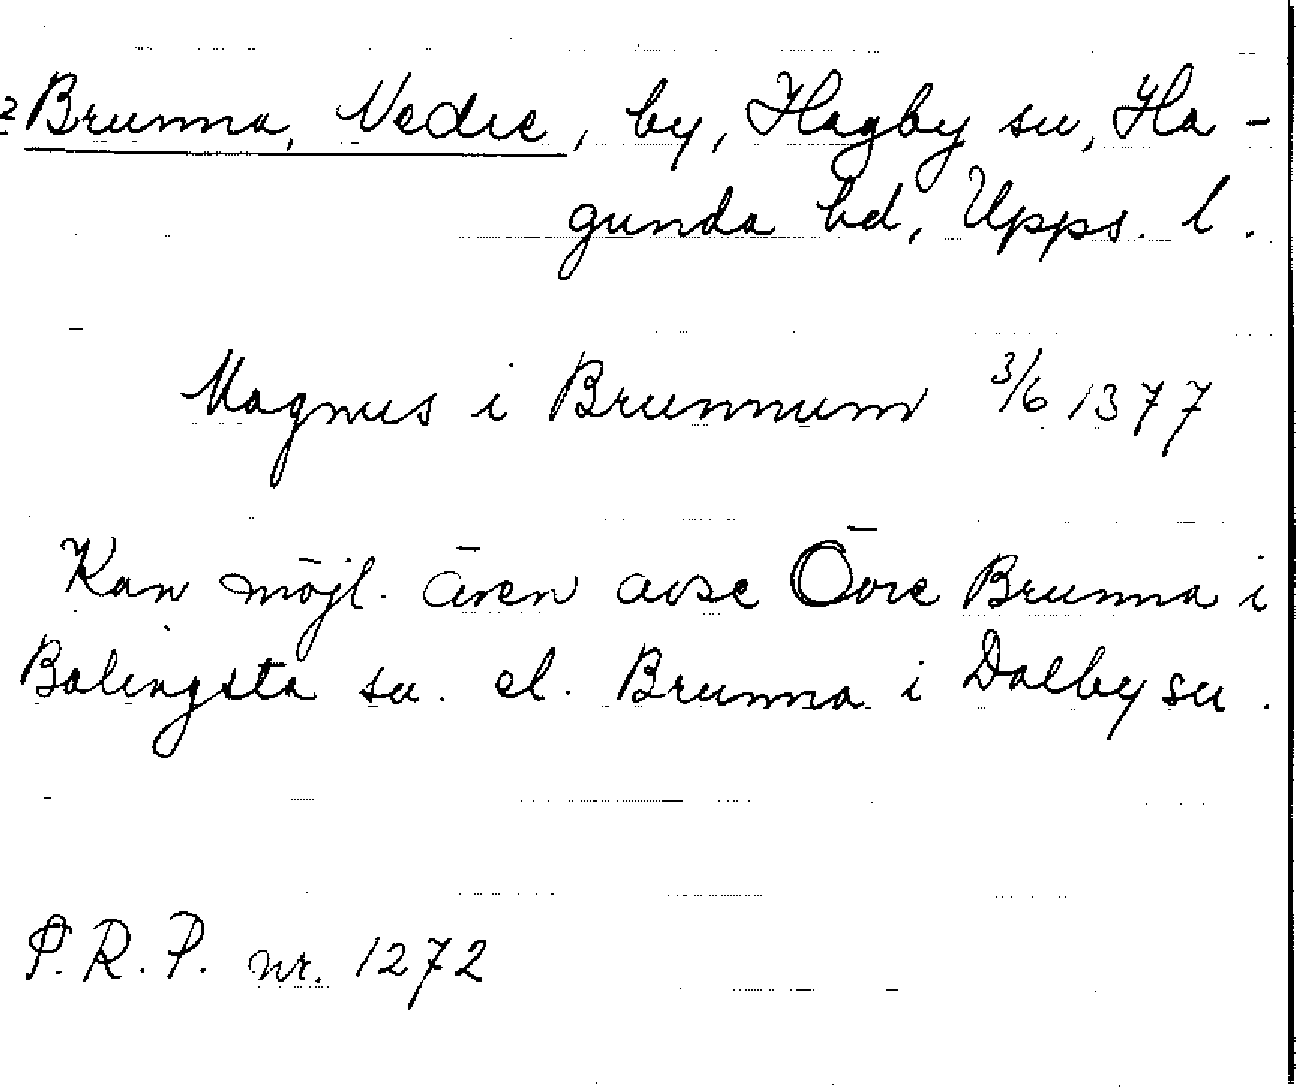 2 Brunna, Nedre, by, Hagby sn, Ha-
gunda hd, Upps. l.
Magnus i Brunnum 3/6 1377
Kan möjl. även avse Övre Brunna i
Balingsta sn. el. Brunna i Dalby sn.
P.R.P. nr. 1272